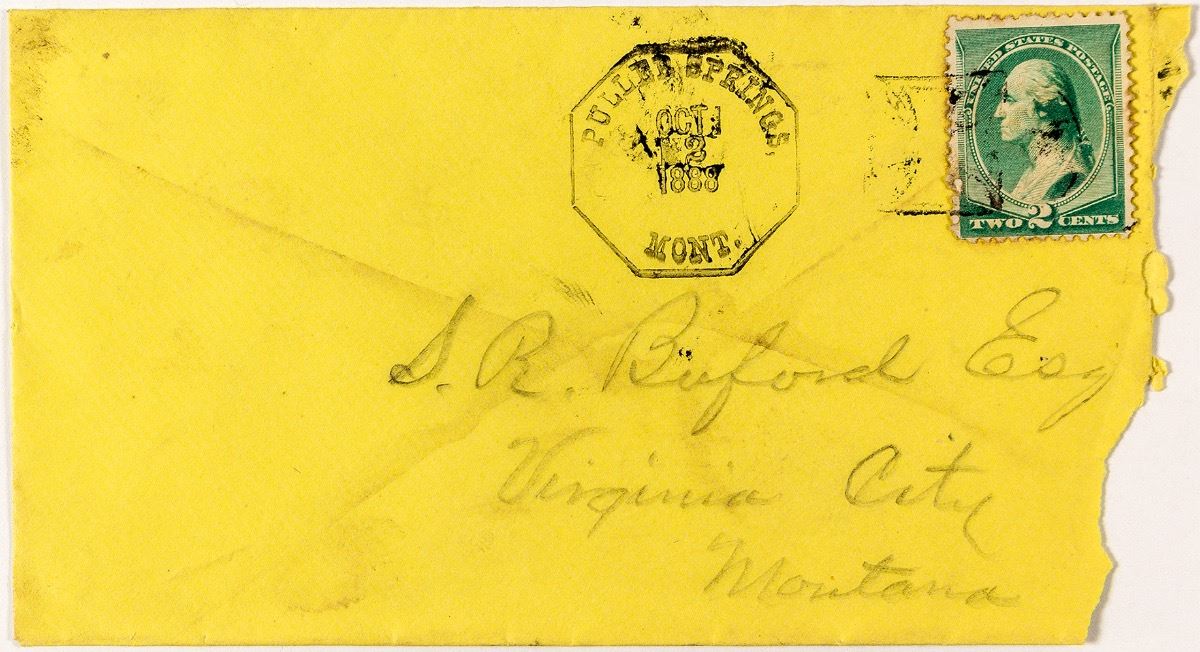 PULLER SPRINGS,
OCT
1888
MONT.
UNITED STATES POSTAGE
TWO 2 CENTS
S. R. Buford Esq
Virginia City
Montana